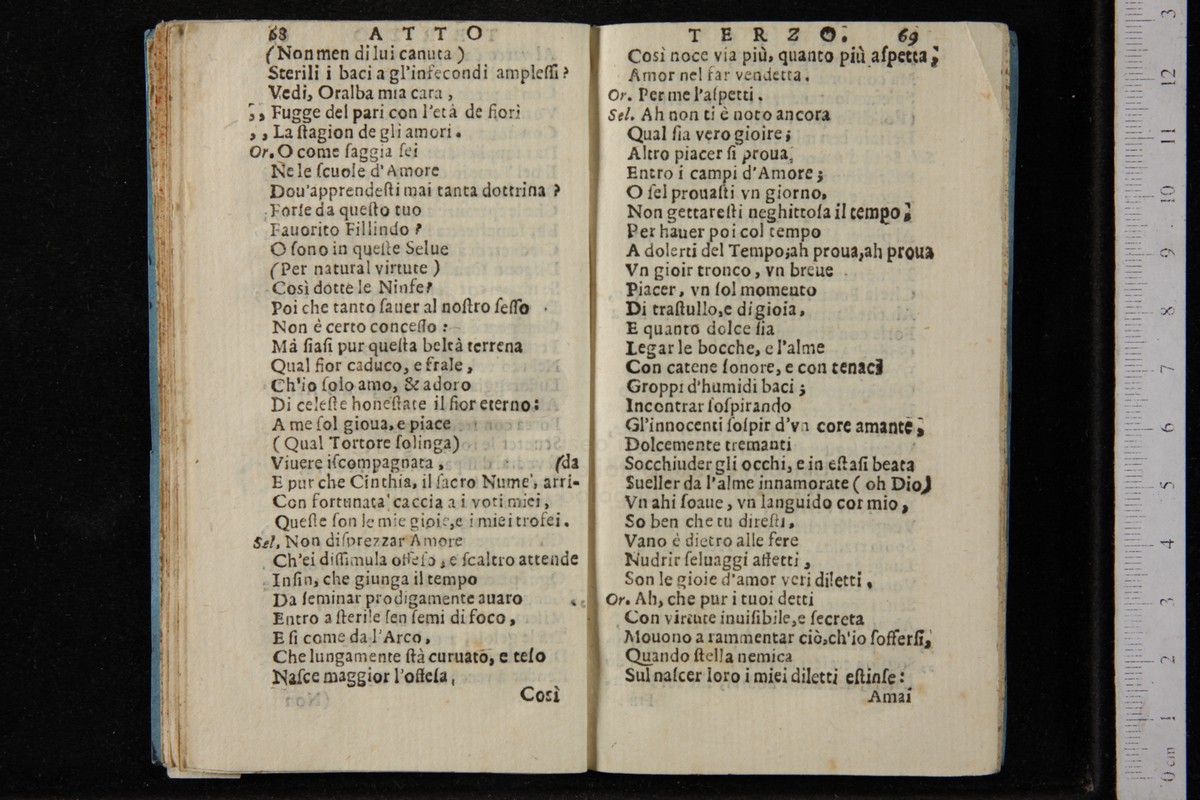 68 ATTO
(Non men di lui canuta)
Sterili i baci a gl'infecondi ampleſſi?
Vedi, Oralba mia cara,
,, Fugge del pari con l'età de fiori
,, La ſtagion de gli amori.
Or. O come ſaggia ſei
Ne le ſcuole d'Amore
Dou'apprendeſti mai tanta dottrina?
Forſe da queſto tuo
Fauorito Fillindo?
O ſono in queſte Selue
(Per natural virtute)
Così dotte le Ninfe?
Poi che tanto ſauer al noſtro ſeſſo
Non è certo conceſſo:
Mà ſiaſi pur queſta beltà terrena
Qual fior caduco, e frale,
Ch'io ſolo amo, & adoro
Di celeſte honeſtate il fior eterno:
A me ſol gioua, e piace
(Qual Tortore ſolinga)
Viuere iſcompagnata, (da
E pur che Cinthia, il ſacro Nume, arri-
Con fortunata caccia a i voti miei,
Queſte ſon le mie gioie, e i miei trofei.
Sel. Non diſprezzar Amore
Ch'ei diſſimula offeſo, e ſcaltro attende
Inſin, che giunga il tempo
Da ſeminar prodigamente auaro
Entro a ſterile ſen ſemi di foco,
E ſi come da l'Arco,
Che lungamente ſtà curuato, e teſo
Naſce maggior l'offeſa,
Così
TERZO. 69
Così noce via più, quanto più aſpetta;
Amor nel far vendetta.
Or. Per me l'aſpetti.
Sel. Ah non ti è noto ancora
Qual ſia vero gioire;
Altro piacer ſi proua,
Entro i campi d'Amore;
O ſel prouaſti vn giorno,
Non gettareſti neghittoſa il tempo;
Per hauer poi col tempo
A dolerti del Tempo; ah proua, ah proua
Vn gioir tronco, vn breue
Piacer, vn ſol momento
Di traſtullo, e di gioia,
E quanto dolce ſia
Legar le bocche, e l'alme
Con catene ſonore, e con tenaci
Groppi d'humidi baci;
Incontrar ſoſpirando
Gl'innocenti ſoſpir d'vn core amante;
Dolcemente tremanti
Socchiuder gli occhi, e in eſtaſi beata
Sueller da l'alme innamorate (oh Dio)
Vn ahi ſoaue, vn languido cor mio,
So ben che tu direſti,
Vano è dietro alle fere
Nudrir ſeluaggi affetti,
Son le gioie d'amor veri diletti.
Or. Ah, che pur i tuoi detti
Con virtute inuiſibile, e ſecreta
Mouono a rammentar ciò, ch'io ſofferſi,
Quando ſtella nemica
Sul naſcer loro i miei diletti eſtinſe:
Amai
0 cm 1 2 3 4 5 6 7 8 9 10 11 12 3